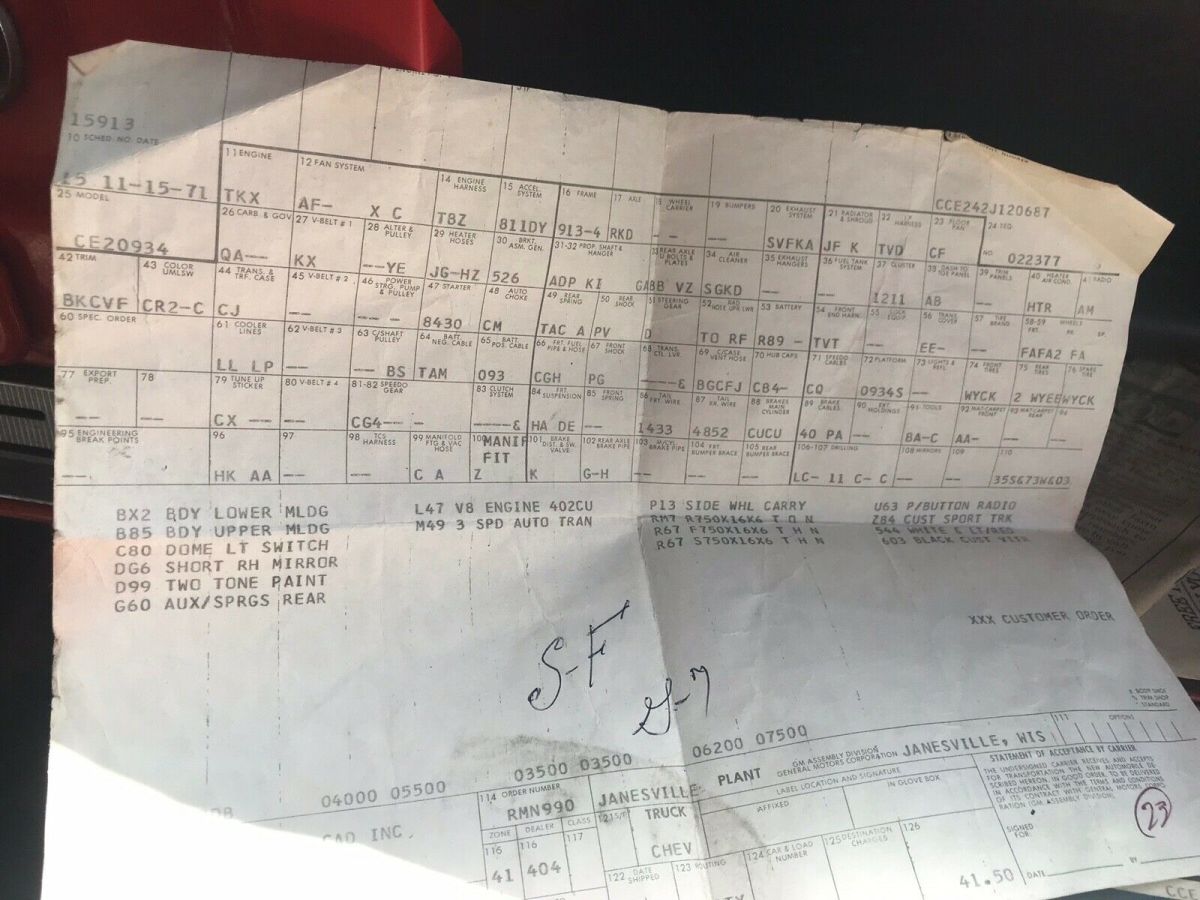 15913
10 SCHED. NO. DATE
15 11-15-71
11 ENGINE
TKX
12 FAN SYSTEM
AF- X C
14 ENGINE HARNESS
TBZ
15 ACCEL. SYSTEM
811DY
16 FRAME
913-4
17 AXLE
RKD
18 WHEEL CARRIER
--
19 BUMPERS
--
20 EXHAUST SYSTEM
SVFKA
21 RADIATOR & SHROUD
JF K
22 I.P. HARNESS
TVD
23 FLOOR PAN
CF
CCE242J120687
24 SEQ.
NO. 022377
25 MODEL
CE20934
26 CARB. & GOV
QA--
27 V-BELT # 1
KX
28 ALTER & PULLEY
--YE
29 HEATER HOSES
JG-HZ
30 BRKT. ASM. GEN.
526
31-32 PROP. SHAFT & HANGER
ADP KI
33 REAR AXLE U BOLTS & PLATES
GABB VZ
34 AIR CLEANER
SGKD
35 EXHAUST HANGERS
--
36 FUEL TANK SYSTEM
--
37 CLUSTER
1211
38 DASH TO TOE PANEL
AB
39 TRIM PANELS
--
40 HEATER AIR COND.
HTR
41 RADIO
AM
42 TRIM
BKCVF
43 COLOR UMLSW
CR2-C
44 TRANS. & TRF. CASE
CJ
45 V-BELT # 2
--
46 POWER STRG. PUMP & PULLEY
--
47 STARTER
8430
48 AUTO CHOKE
CM
49 REAR SPRING
TAC A
50 REAR SHOCK
PV
51 STEERING GEAR
D
52 RAD HOSE UPR LWR
TO RF
53 BATTERY
R89 -
54 FRONT END HARN.
TVT
55 LOCK EQUIP
--
56 TRANS. COVER
EE--
57 TIRE BRAND
--
58-59 WHEELS
FRT. RR. SP.
FAFA2 FA
60 SPEC. ORDER
61 COOLER LINES
LL LP
62 V-BELT # 3
--
63 C/SHAFT PULLEY
BS
64 BATT. NEG. CABLE
TAM
65 BATT. POS. CABLE
093
66 FRT. FUEL PIPE & HOSE
CGH
67 FRONT SHOCK
PG
68 TRANS. CTL. LVR.
---&
69 C/CASE VENT HOSE
BGCFJ
70 HUB CAPS
C84-
71 SPEEDO CABLES
CQ
72 PLATFORM
0934S
73 LIGHTS & REFL.
--
74 FRONT TIRES
WYCK
75 REAR TIRES
2 WYEE
76 SPARE TIRE
WYCK
77 EXPORT PREP.
--
78
--
79 TUNE UP STICKER
CX
80 V-BELT # 4
--
81-82 SPEEDO GEAR
CG4--
83 CLUTCH SYSTEM
---&
84 FRT. SUSPENSION
HA DE
85 FRONT SPRING
--
86 TAIL FRT. WIRE
1433
87 TAIL RR. WIRE
4852
88 BRAKES MAIN CYLINDER
CUCU
89 BRAKE CABLES
40 PA
90 EXT. MOLDINGS
--
91 TOOLS
8A-C
92 MAT/CARPET FRONT
AA-
93 MAT/CARPET REAR
--
94
95 ENGINEERING BREAK POINTS
96
HK AA
97
--
98 TCS HARNESS
--
99 MANIFOLD FTG & VAC HOSE
C A
100 MANIF FIT
Z
101 BRAKE DIST. & SW. VALVE
K
102 REAR AXLE BRAKE PIPE
G-H
103 M/CYL. BRAKE PIPE
--
104 FRT. BUMPER BRACE
--
105 REAR BUMPER BRACE
--
106-107 DRILLING
LC- 11 C- C
108 MIRRORS
--
109
--
110
35S&73W&03
BX2 BDY LOWER MLDG
B85 BDY UPPER MLDG
C80 DOME LT SWITCH
DG6 SHORT RH MIRROR
D99 TWO TONE PAINT
G60 AUX/SPRGS REAR
L47 V8 ENGINE 402CU
M49 3 SPD AUTO TRAN
P13 SIDE WHL CARRY
RM7 R750X16X6 T O N
R67 F750X16X6 T H N
R67 S750X16X6 T H N
U63 P/BUTTON RADIO
Z84 CUST SPORT TRK
603 BLACK CUST
XXX CUSTOMER ORDER
S-F
04000 05500
03500 03500
06200 07500
BODY SHOP
TRIM SHOP
STANDARD
114 ORDER NUMBER
RMN990
JANESVILLE
TRUCK
CHEV
CAD INC.
ZONE
DEALER
CLASS
115
116
117
41
404
PLANT
GM ASSEMBLY DIVISION
GENERAL MOTORS CORPORATION
JANESVILLE, WIS
111 OPTIONS
LABEL LOCATION AND SIGNATURE
AFFIXED
IN GLOVE BOX
STATEMENT OF ACCEPTANCE BY CARRIER
THE UNDERSIGNED CARRIER RECEIVES AND ACCEPTS
FOR TRANSPORTATION THE NEW AUTOMOBILE DE-
SCRIBED HEREON IN GOOD ORDER, TO BE DELIVERED
IN ACCORDANCE WITH THE TERMS AND CONDITIONS
OF ITS CONTRACT WITH GENERAL MOTORS CORPO-
RATION (GM ASSEMBLY DIVISION).
SIGNED FOR
BY
DATE
23
122 DATE SHIPPED
123 ROUTING
124 CAR & LOAD NUMBER
125 DESTINATION CHARGES
126
41.50
CCE